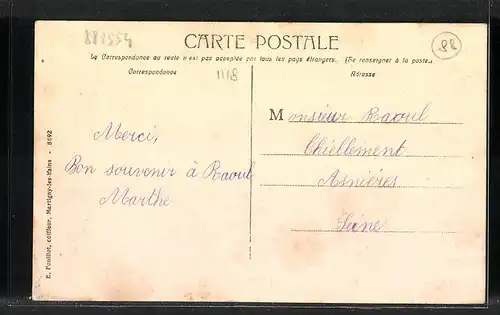 881554
CARTE POSTALE
88
La Correspondance au recto n'est pas acceptée par tous les pays étrangers. (Se renseigner à la poste.)
Correspondance
1118
Adresse
Monsieur Raoul
Chiellement
Asnières
Seine
Merci,
Bon souvenir à Raoul
Marthe
E. Pouillot, coiffeur, Martigny-les-Bains - 8892